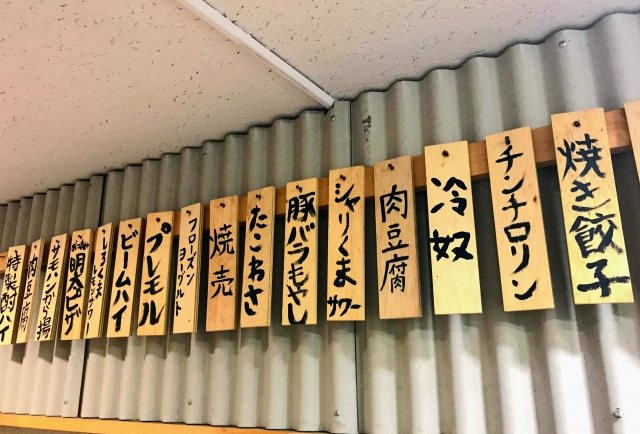 焼き餃子
チンチロリン
冷奴
肉豆腐
シャリくま
サワー
豚バラもやし
たこわさ
焼売
フローズン
ヨーグルト
プレモル
ビームハイ
しろくま
レモンサワー
明太ピザ
サモハンから揚
肉豆腐
特製酎ハイ